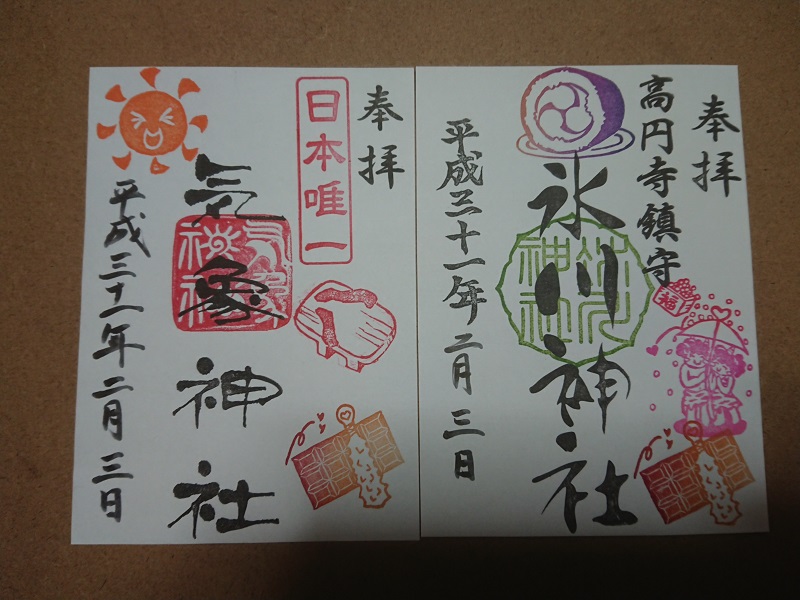 奉拝
高円寺鎮守
氷川神社
平成三十一年二月三日
福
奉拝
日本唯一
気象神社
平成三十一年二月三日